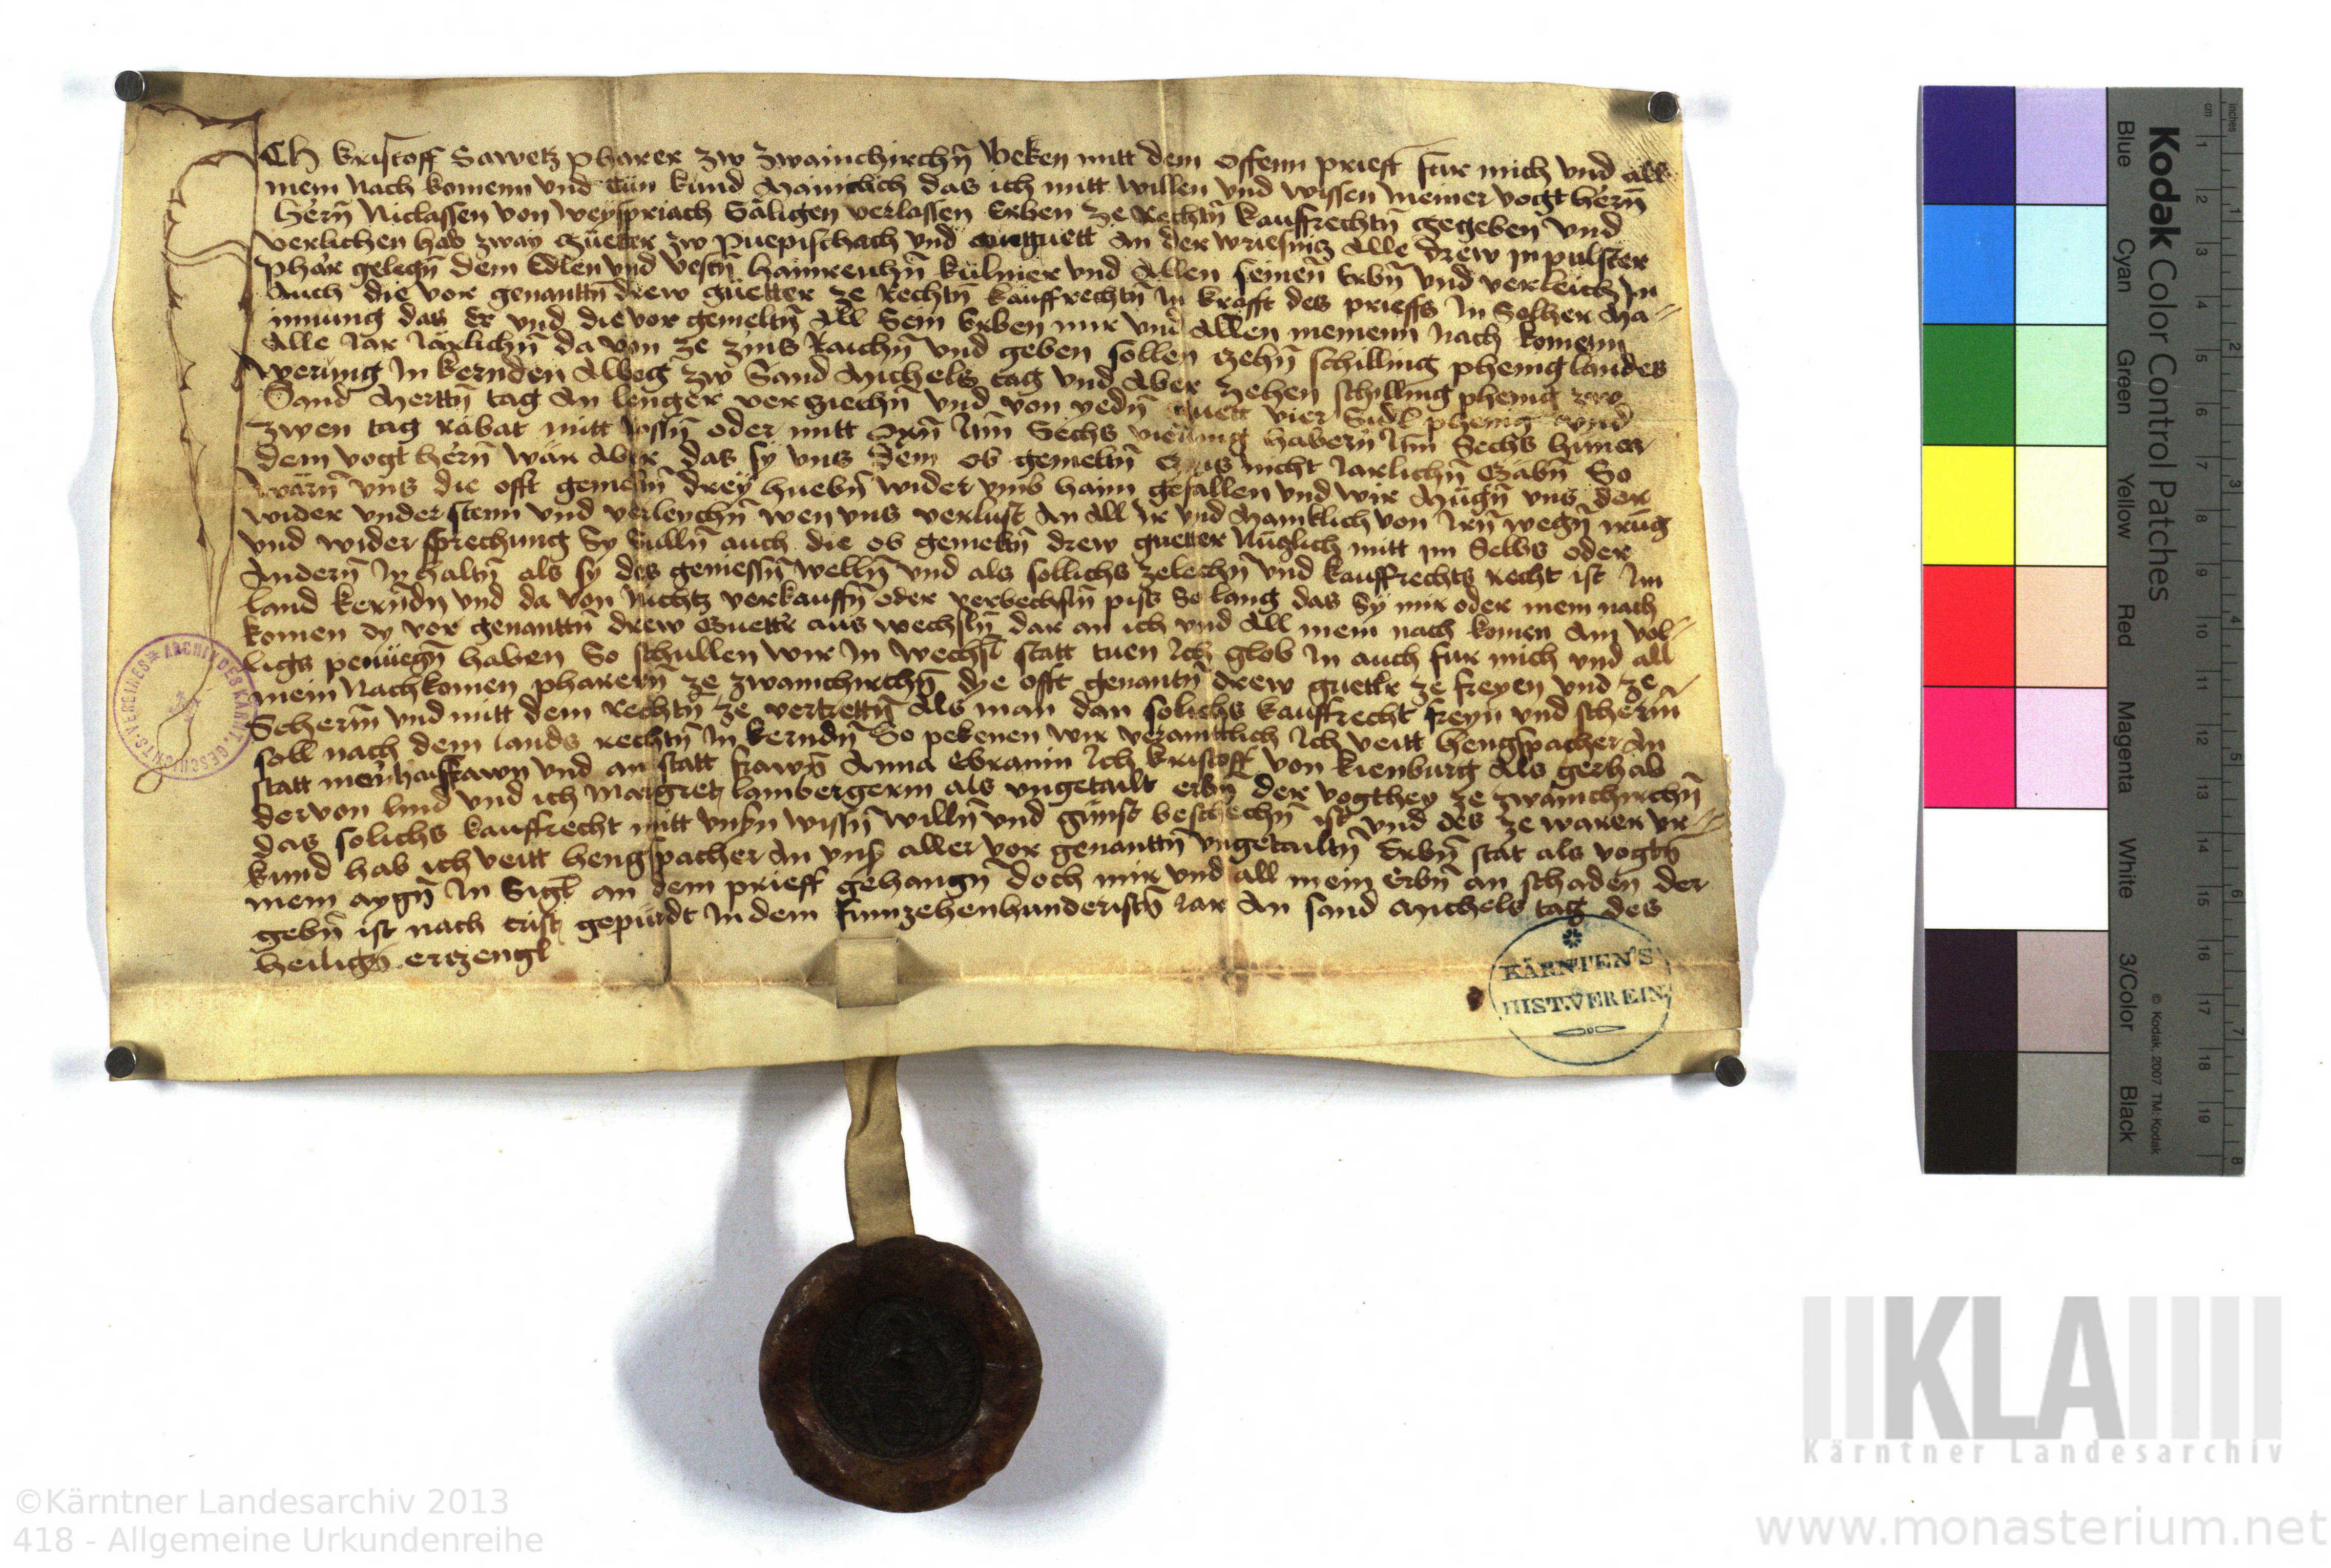 Ich kristoff Sawetz pharer zw zwainchirchn̄ Beken mitt dem offenn prieff fur mich vnd all
mein nach komenn vnd tün kund das ich mitt willen vnd wissen meiner vogt hern̄
hern̄ Niclassen von weyspriach Säligen verlassen Erben ze Rechtn̄ kauffrechtn̄ gegeben vnd
verlichen hab zway Güetter zw Puepitschach vnd guett An der wriesnitz Alle drew in pulster
phar gelegn̄ dem Edlen vnd vestn̄ hainreichn̄ külmer vnd Allen seinen̄ Erbn̄ vnd verleich In
Auch die vor genanttn̄ drew güetter ze Rechtn̄ kauffrechtn̄ In krafft des prieffs In Solher Ma=
innung das Er vnd die vor gemeltn̄ All Sein Erben mir vnd Allen meinenn nach komenn
Alle Jar Järlichn̄ da von ze zins Raichn̄ vnd geben sollen zehn̄ schilling phenig landes
werung In kernden Albeg zw Sand Michels tag vnd Aber zehen schilling phenig zw
Sand Merttn̄ tag An lenger verziechn̄ vnd von yedn̄ guett vier phenig vnd
zwen tag Räbat mitt Rossn̄ oder mitt Oxn̄ Sechs vierling habern̄ Sechs hüner
dem vogt hern̄ wär Aber das sy vns dem ob gemeltn̄ Zins nicht Jarlichn̄ Gäbn̄ So
wärn̄ vns die offt gemeltn̄ drey huebn̄ wider vmb haim gefallen vnd wir Mügn̄ vns der
wider vnder stenn vnd verleychn̄ wen vns verlust An All Ir vnd Mänklich von Irn̄ wegn̄ irüg
vnd wider sprechung Sy Sülln̄ auch die ob gemeltn̄ drew guetter Nuczlich mitt im Selbs oder
Andern̄ In haltn̄ als sy des geniessn̄ welln̄ vnd als sollichs zelechn̄ vnd kauffrechts Recht ist Im
land kerndn̄ vnd da von Nichtz verkauffn̄ oder verbechsln̄ pis So lang das Sy mir oder mein nach
komen dy vor genanttn̄ drew Guettr aus wechsln̄ dar an ich vnd All mein nach komen Am vol=
ligs penüegn̄ haben So schullen wir In wechsl statt tuen Ich glob In auch fur mich vnd all
mein Nachkomen pharern̄ ze zwainchirchn̄ dye offt genantn̄ drew guettr ze freyen vnd ze
Scherm̄ vnd mitt dem Rechtn̄ ze vertrettn̄ Als man dan solichs kauffrecht freyn vnd scherm̄
soll nach dem lands rechtn̄ In kerndn̄ So pekenen wir Ich veitt hengspacher An
statt meiner hausfrawn vnd an statt frawn̄ Anna Ebranin Ich kristoff von kienburg Als gerhab
der von lind vnd ich Margret lambergerin als vngetailt erbn̄ der vogthey ze zwainchirchn̄
das solichs kauffrecht mitt vnsn̄ wissn̄ willn̄ vnd günst beschechn̄ ist vnd des ze warer vr=
kund hab ich veitt hengspacher An vns aller vor genanttn̄ vngetailtn̄ Erbn̄ stat als vogtn̄
mein aygn̄ In Sigl an dem prieff gehangn̄ doch mir vnd all mein Erbn̄ an schaden der
gebn̄ ist nach crist gepürdt In dem funnzehenhunderistn̄ Jar An sand Michels tag des
heilign̄ ertzengl
ARCHIV DES KÄRNT. GESCHICHTS-VEREINES
KÄRNTEN'S
HIST. VEREIN
Kodak Color Control Patches
Blue Cyan Green Yellow Red Magenta White 3/Color Black
© Kodak, 2007 TM: Kodak
cm 1 2 3 4 5 6 7 8 9 10 11 12 13 14 15 16 17 18 19
inches 1 2 3 4 5 6 7 8
KLA
Kärntner Landesarchiv
©Kärntner Landesarchiv 2013
418 - Allgemeine Urkundenreihe
www.monasterium.net